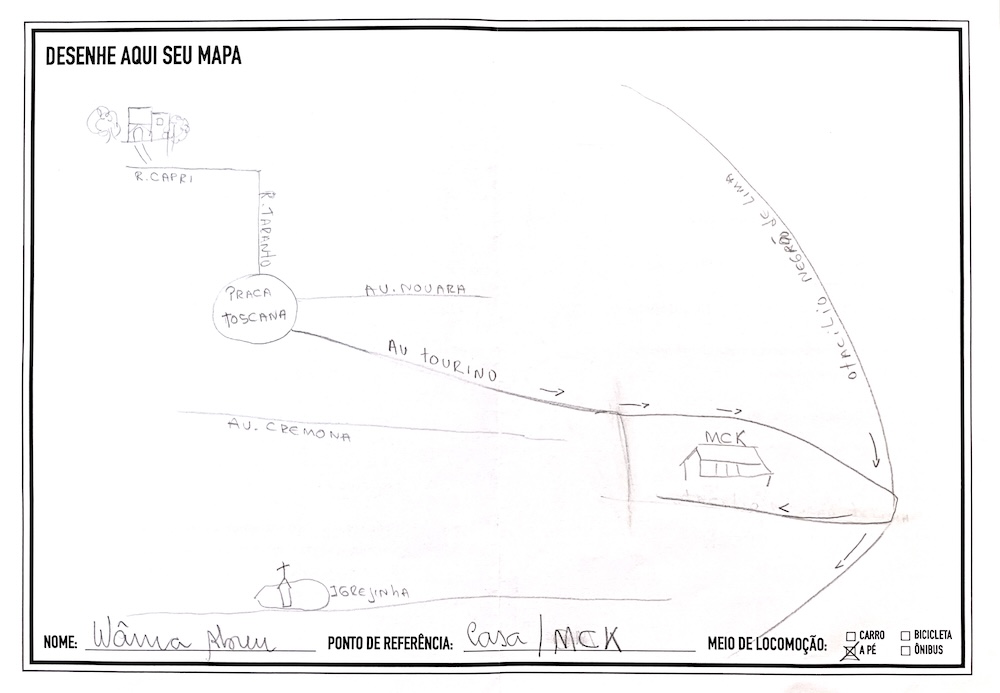 DESENHE AQUI SEU MAPA
R. CAPRI
R. TARANTO
PRACA
TOSCANA
AV. NOVARA
AV TOURINO
AV. CREMONA
otACiLiO NEGRÃO de LIMA
MCK
IGREJINHA
NOME: Wânia Abreu
PONTO DE REFERÊNCIA: Casa / MCK
MEIO DE LOCOMOÇÃO:
CARRO
BICICLETA
A PÉ
ÔNIBUS